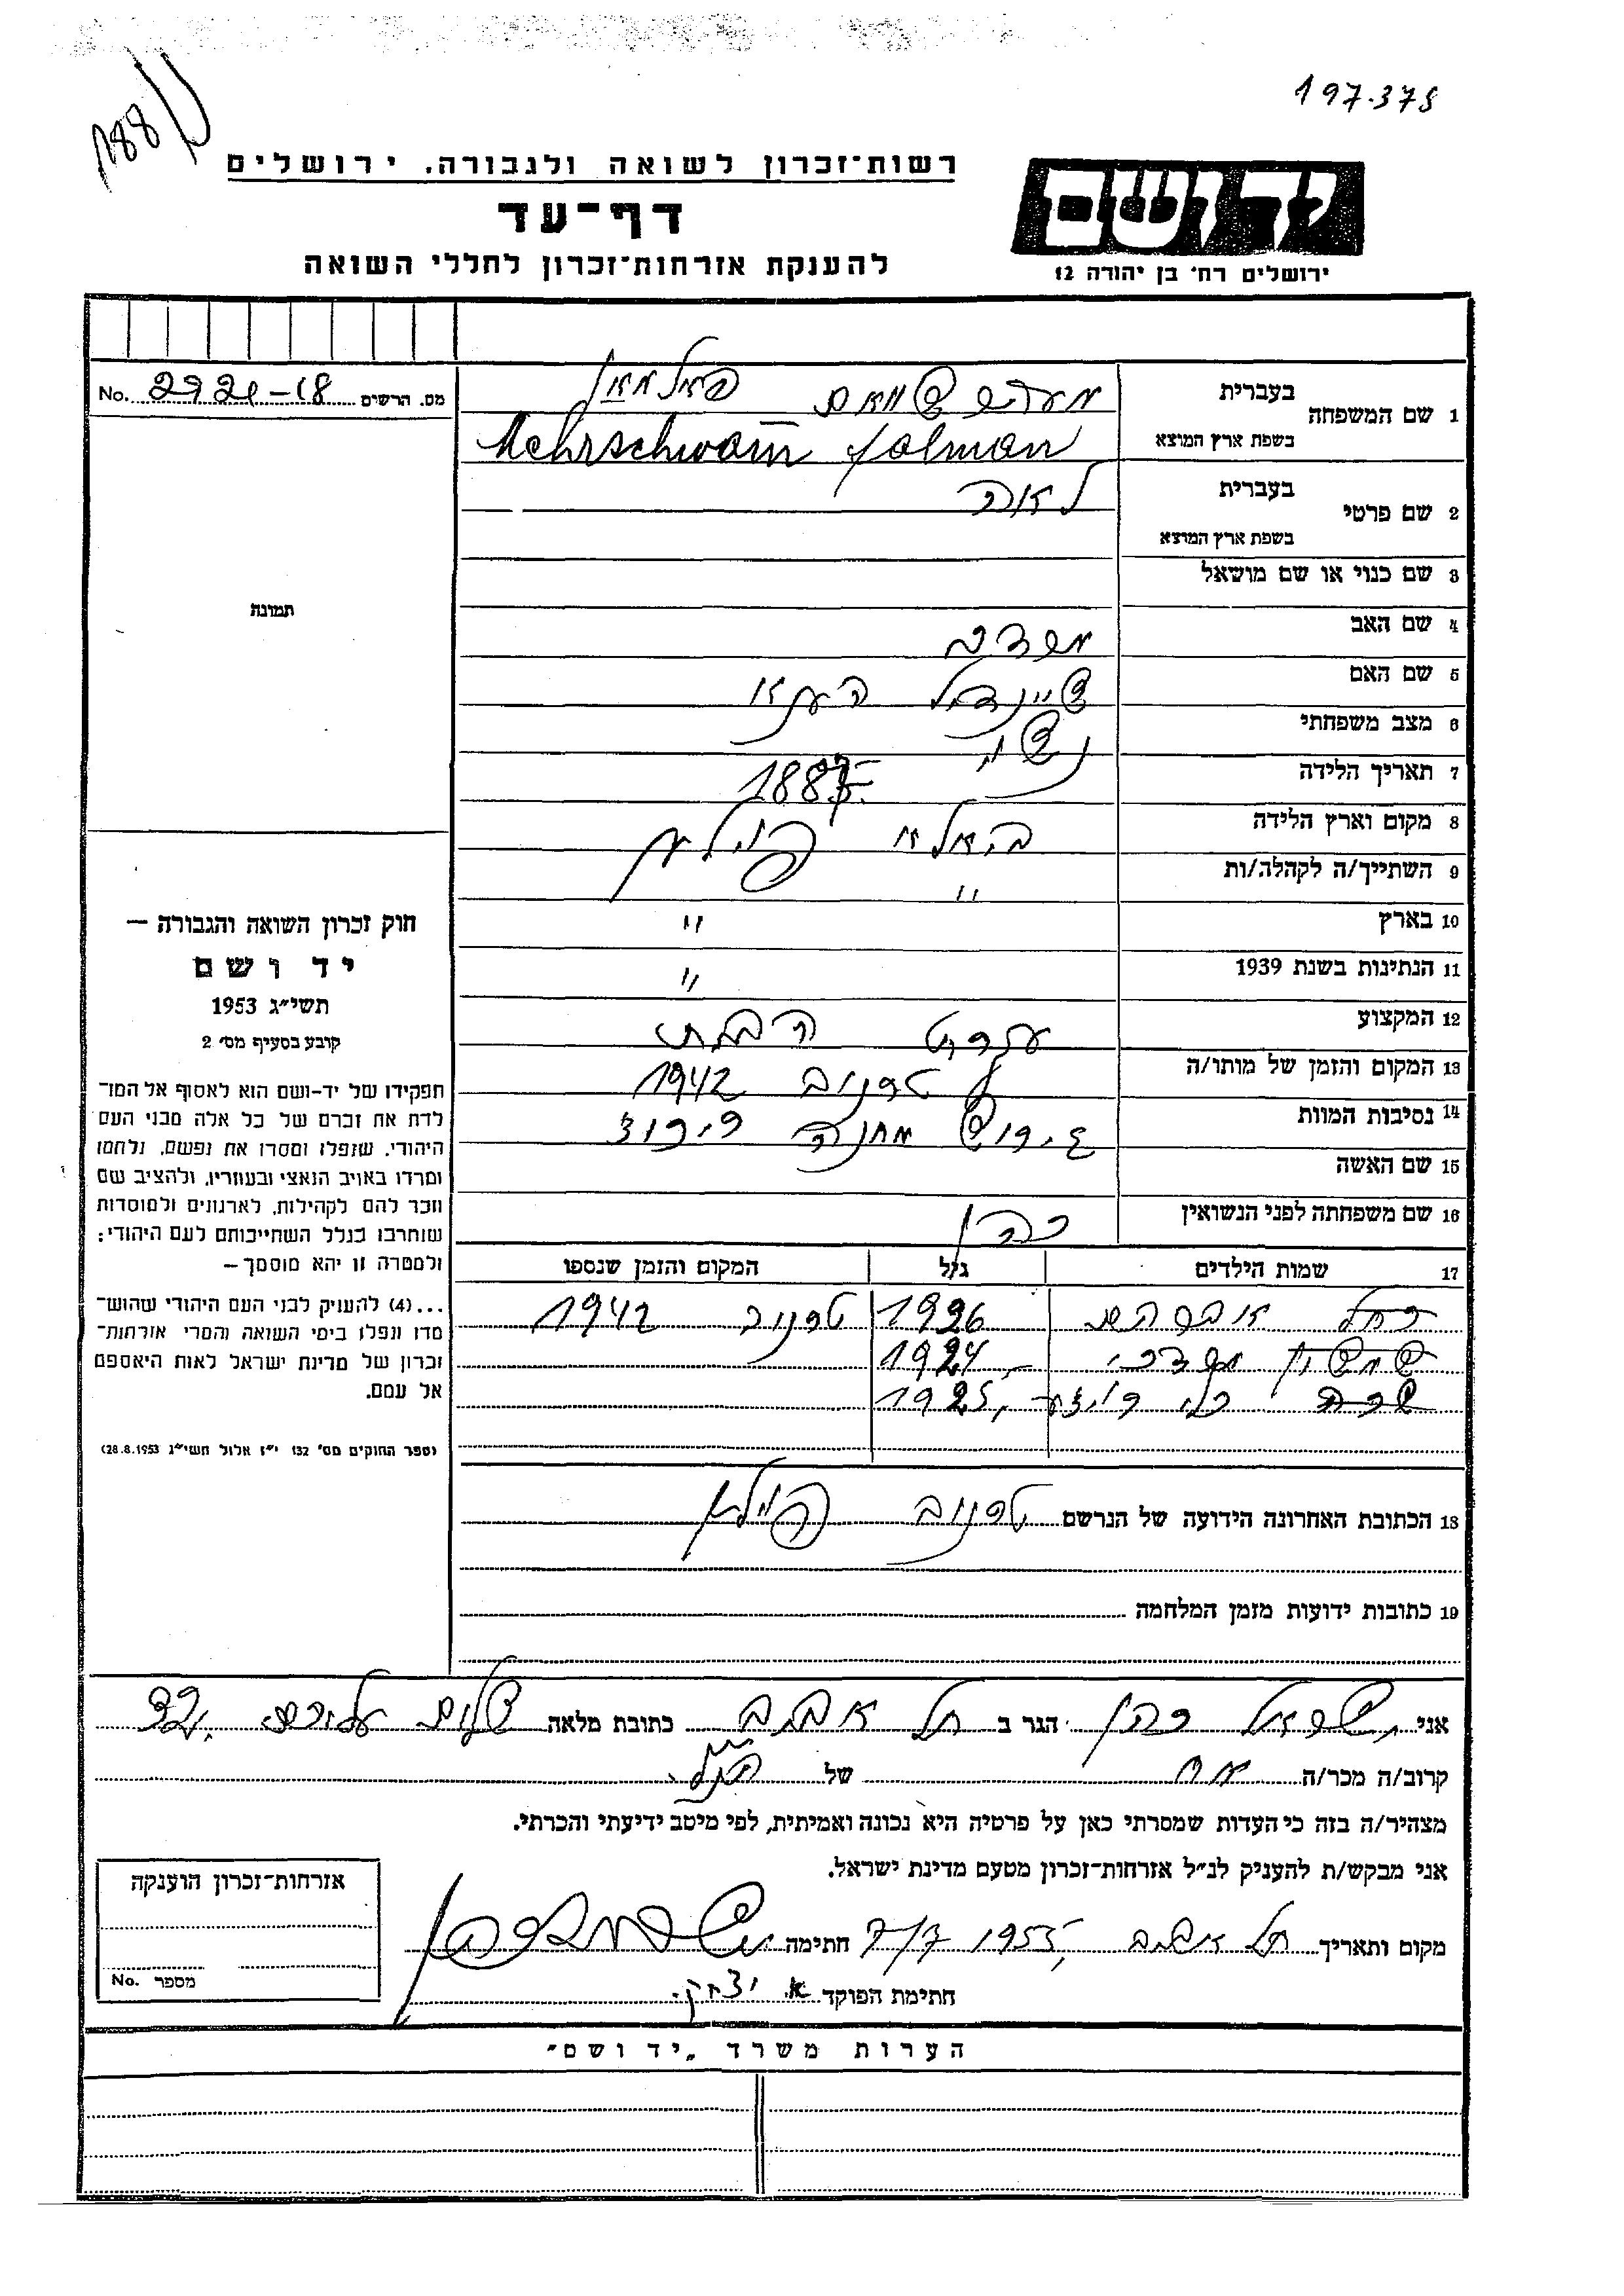 197.378
רשות־זכרון לשואה ולגבורה. ירושלים
יד ושם
דף־עד
להענקת אזרחות־זכרון לחללי השואה
ירושלים רח׳ בן יהודה 12
מס. הרשים 2921-18 No.
1 שם המשפחה
בעברית
בשפת ארץ המוצא Mehrschwam Folman
2 שם פרטי
בעברית לאה
בשפת ארץ המוצא
3 שם כנוי או שם מושאל
4 שם האב
5 שם האם שיינדל
6 מצב משפחתי
7 תאריך הלידה
8 מקום וארץ הלידה
9 השתייך/ה לקהלה/ות "
10 בארץ "
11 הנתינות בשנת 1939 "
12 המקצוע עקרת הבית
13 המקום והזמן של מותו/ה טרנוב 1942
14 נסיבות המוות גירוש מחנה
15 שם האשה
16 שם משפחתה לפני הנשואין כהן
17 שמות הילדים גיל המקום והזמן שנספו
רחל 1926 טרנוב 1942
שמשון מרדכי 1924
שרה 1925
18 הכתובת האחרונה הידועה של הנרשם טרנוב
19 כתובות ידועות מזמן המלחמה
תמונה
חוק זכרון השואה והגבורה —
יד ושם
תשי״ג 1953
קובע בסעיף מס׳ 2
תפקידו של יד־ושם הוא לאסוף אל המו־
לדת את זכרם של כל אלה מבני העם
היהודי, שנפלו ומסרו את נפשם, נלחמו
ומרדו באויב הנאצי ובעוזריו, ולהציב שם
וזכר להם לקהילות, לארגונים ולמוסדות
שנחרבו בגלל השתייכותם לעם היהודי;
ולמטרה זו יהא מוסמך—
...(4) להעניק לבני העם היהודי שהוש־
מדו ונפלו בימי השואה והמרי אזרחות־
זכרון של מדינת ישראל לאות היאספם
אל עמם.
(ספר החוקים מס׳ 132 י״ז אלול תשי״ג 28.8.1953)
אני ישראל כהן הגר ב תל אביב כתובת מלאה שלום עליכם 32
קרוב/ה מכר/ה אח של הנ״ל
מצהיר/ה בזה כי העדות שמסרתי כאן על פרטיה היא נכונה ואמיתית, לפי מיטב ידיעתי והכרתי.
אני מבקש/ת להעניק לנ״ל אזרחות־זכרון מטעם מדינת ישראל.
מקום ותאריך תל אביב 1955 7/7 חתימה
חתימת הפוקד א. יצחק
אזרחות־זכרון הוענקה
מספר No.
הערות משרד „יד ושם״